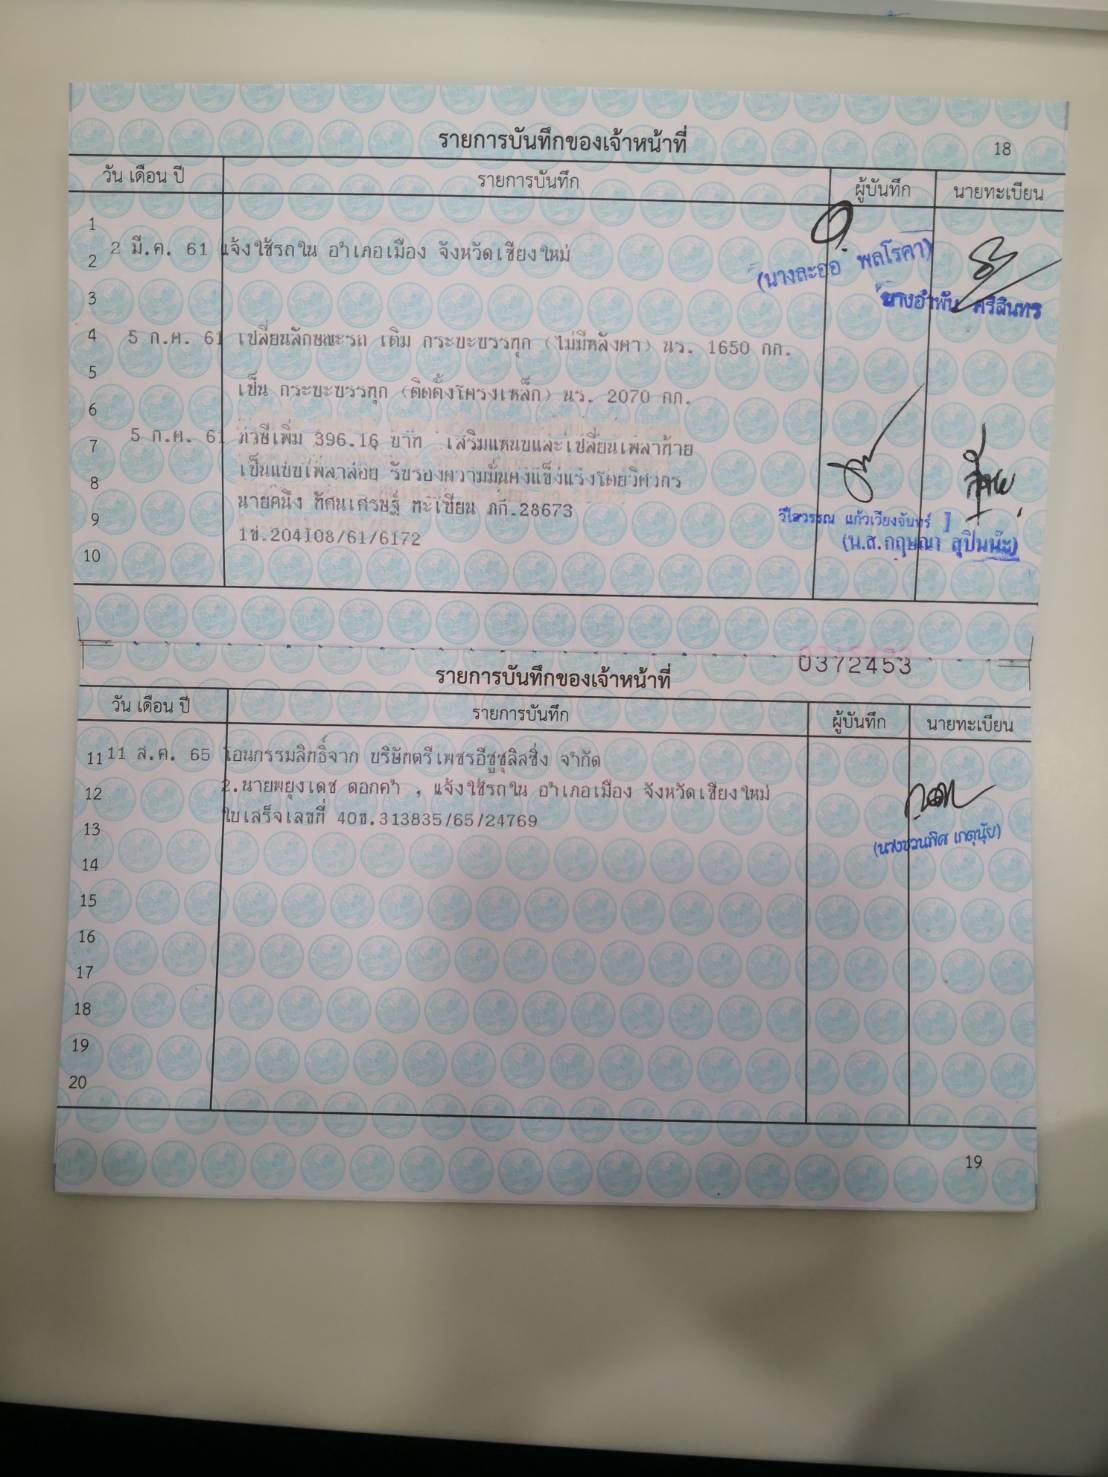 รายการบันทึกของเจ้าหน้าที่
18
วัน เดือน ปี รายการบันทึก ผู้บันทึก นายทะเบียน
1
2 2 มี.ค. 61 แจ้งใช้รถใน อำเภอเมือง จังหวัดเชียงใหม่
(นางละออ พลโรคา)
นางอำพัน ศรีสินทร
3
4 5 ก.ค. 61 เปลี่ยนลักษณะรถ เดิม กระบะบรรทุก (ไม่มีหลังคา) นร. 1650 กก.
5 เป็น กระบะบรรทุก (ติดตั้งโครงเหล็ก) นร. 2070 กก.
6
7 5 ก.ค. 61 ภาษีเพิ่ม 396.16 บาท เสริมแหนบและเปลี่ยนเพลาท้าย
8 เป็นแบบเพลาลอย รับรองความมั่นคงแข็งแรงโดยวิศวกร
9 นายคนึง ทัศนเศรษฐ์ ทะเบียน ภก.28673
10 1ข.204108/61/6172
วิไลวรรณ แก้วเวียงจันทร์
(น.ส.กฤษณา สุปินน๊ะ)
0372453
รายการบันทึกของเจ้าหน้าที่
วัน เดือน ปี รายการบันทึก ผู้บันทึก นายทะเบียน
11 11 ส.ค. 65 โอนกรรมสิทธิ์จาก บริษัทตรีเพชรอีซูซุลิสซิ่ง จำกัด
12 2.นายพยุงเดช ดอกคำ , แจ้งใช้รถใน อำเภอเมือง จังหวัดเชียงใหม่
13 ใบเสร็จเลขที่ 40ข.313835/65/24769
(นางชวนพิศ เกตุนุ้ย)
14
15
16
17
18
19
20
19